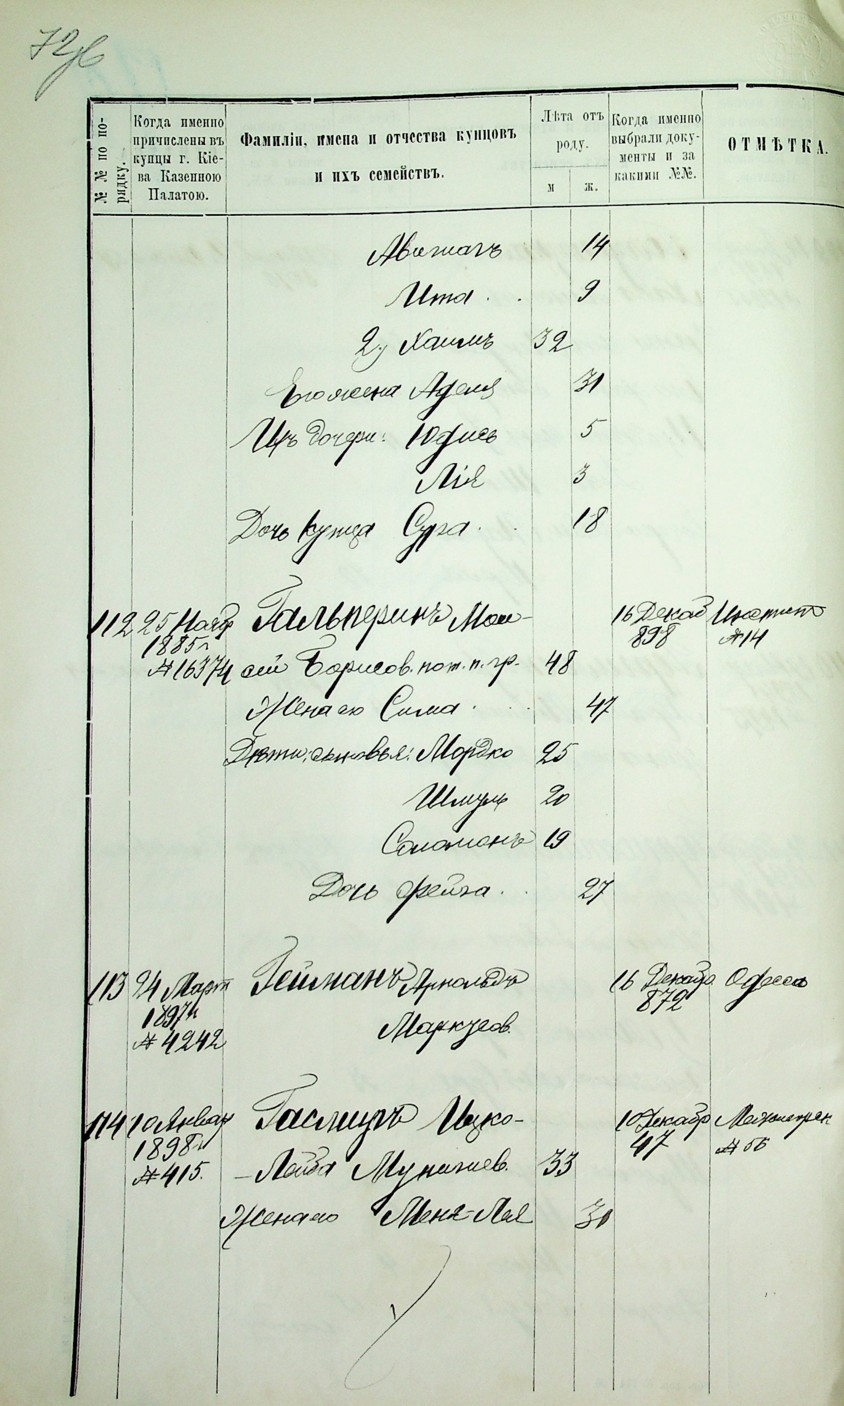 72об
№№ по по-
рядку.
Когда именно
причислены въ
купцы г. Кіе-
ва Казенною
Палатою.
Фамиліи, имена и отчества купцовъ
и ихъ семействъ.
Лѣта отъ
роду.
м ж.
Когда именно
выбрали доку-
менты и за
какими №№.
ОТМѢТКА.
14
Ита 9
2) Хаимъ 32
Его жена Аделя 31
Ихъ дочери: Юдись 5
Лія 3
Дочь купца Сура 18
112 25 Нояб Гальперинъ Мои- 16 Декаб
1885 г. 898 №14
№16374 сей Борисов. пот. п. гр. 48
Жена его Сима 47
Дѣти: сыновья: Мордко 25
Шмуль 20
Соломонъ 19
Дочь Фейга 27
113 24 Март Гейманъ Арнольдъ 16 Декаб Одесса
1897 г. 872
№ 4242 Маркусов.
114 10 Январ Гаслицъ Ицко- 10 Декаб
1898 г. 47
№ 415. -Лейба 33
Жена его Меня-Лея 30